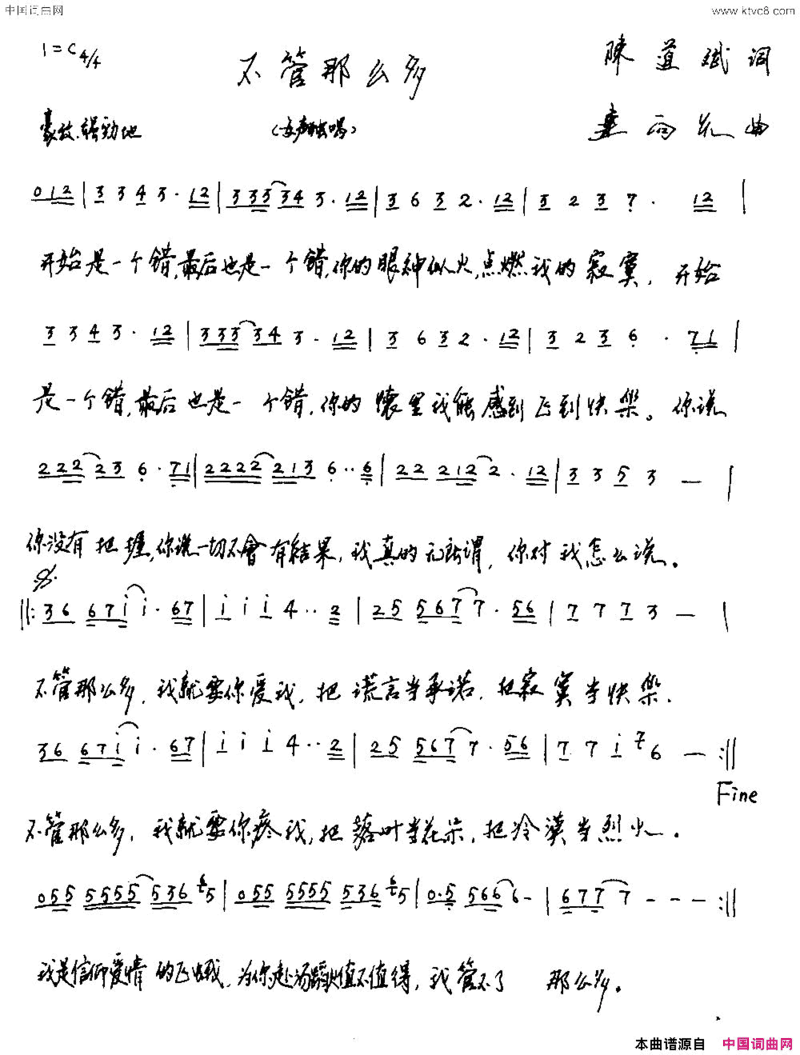 中国词曲网 www.ktvc8.com
1=C 4/4 不管那么多 陳道斌 词
豪放、强劲地 (女声独唱) 曲
0 1 2 | 3 3 4 3 · 1 2 | 3 3 3 3 4 3 · 1 2 | 3 6 3 2 · 1 2 | 3 2 3 7 · 1 2 |
开始是一个错,最后也是一个错,你的眼神似火,点燃我的寂寞,开始
3 3 4 3 · 1 2 | 3 3 3 3 4 3 · 1 2 | 3 6 3 2 · 1 2 | 3 2 3 6 · 7 1 |
是一个错,最后也是一个错,你的懷里我能感到飞到快樂。你说
2 2 2 2 3 6 · 7 1 | 2 2 2 2 2 1 3 6 · · 6 | 2 2 2 1 2 2 · 1 2 | 3 3 5 3 — |
你没有把握,你说一切不會有结果,我真的无所谓,你对我怎么说。
‖: 3 6 6 7 i i · 6 7 | i i i 4 · · 2 | 2 5 5 6 7 7 · 5 6 | 7 7 7 3 — |
不管那么多,我就要你爱我,把谎言当承诺,把寂寞当快樂.
3 6 6 7 i i · 6 7 | i i i 4 · · 2 | 2 5 5 6 7 7 · 5 6 | 7 7 i 7 6 — :‖
Fine
不管那么多,我就要你疼我,把落叶当花朵,把冷漠当烈火.
0 5 5 5 5 5 5 5 3 6 6 5 | 0 5 5 5 5 5 5 5 3 6 6 5 | 0 · 5 5 6 6 6 - | 6 7 7 7 7 - - - :‖
我是信仰爱情的飞蛾,为你赴汤蹈火值不值得,我管不了 那么多。
本曲谱源自 中国词曲网